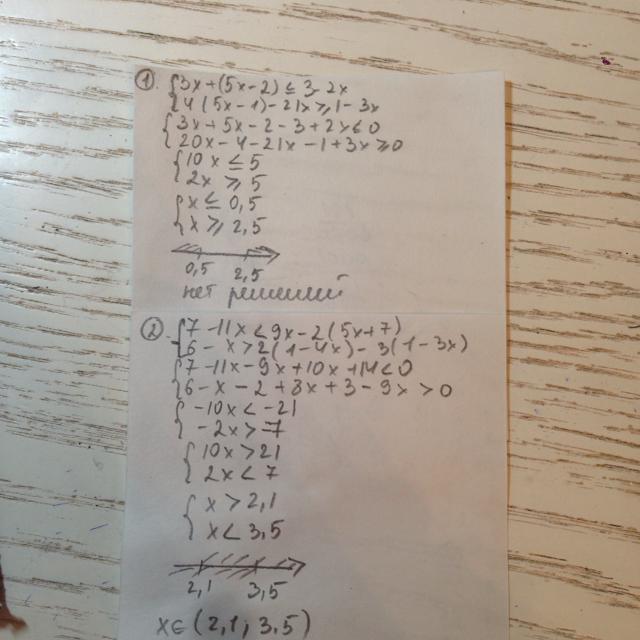 ① { 3x+(5x-2) ≤ 3-2x
4(5x-1)-21x ≥ 1-3x
{ 3x+5x-2-3+2x ≤ 0
20x-4-21x-1+3x ≥ 0
{ 10x ≤ 5
2x ≥ 5
{ x ≤ 0,5
x ≥ 2,5
0,5 2,5
нет решений
② { 7-11x < 9x-2(5x+7)
6-x > 2(1-4x)-3(1-3x)
{ 7-11x-9x+10x+14 < 0
6-x-2+8x+3-9x > 0
{ -10x < -21
-2x > -7
{ 10x > 21
2x < 7
{ x > 2,1
x < 3,5
2,1 3,5
x∈ (2,1; 3,5)